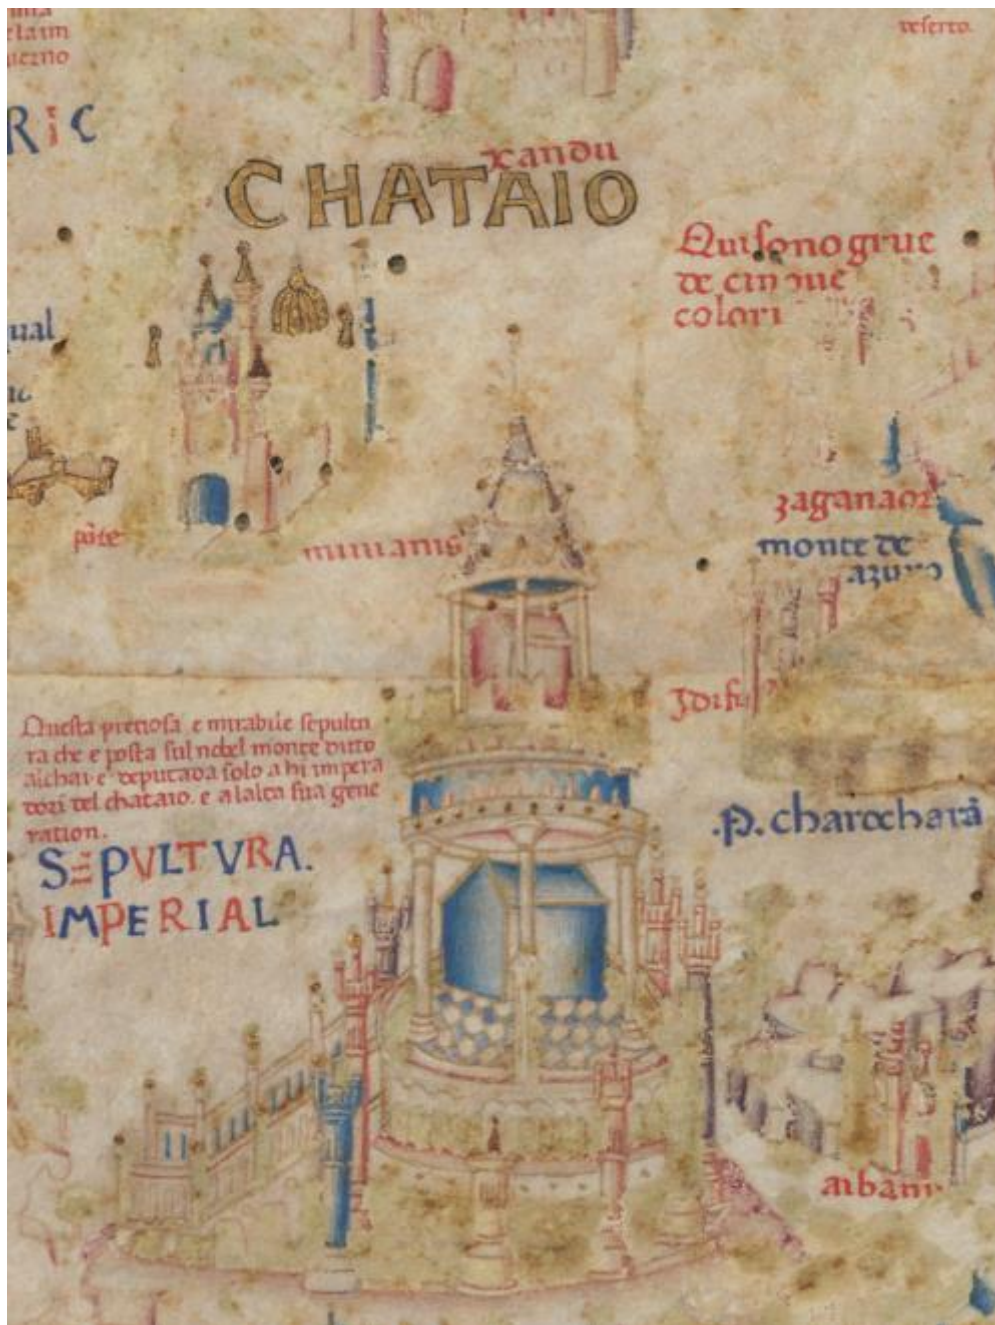 elaım
uerno
deserto.
RIC
xandu
CHATAIO
Qui sono grue
de cinque
colori
ual
zaganaor
pōte
monte de
azuro
Questa preciosa e mirabile sepultu
ra che e posta sul nobel monte dicto
alchai e deputada solo a hi impera
dori del chataio. e a l alta sua gene
ration.
SEPVLTVRA.
IMPERIAL
.P.